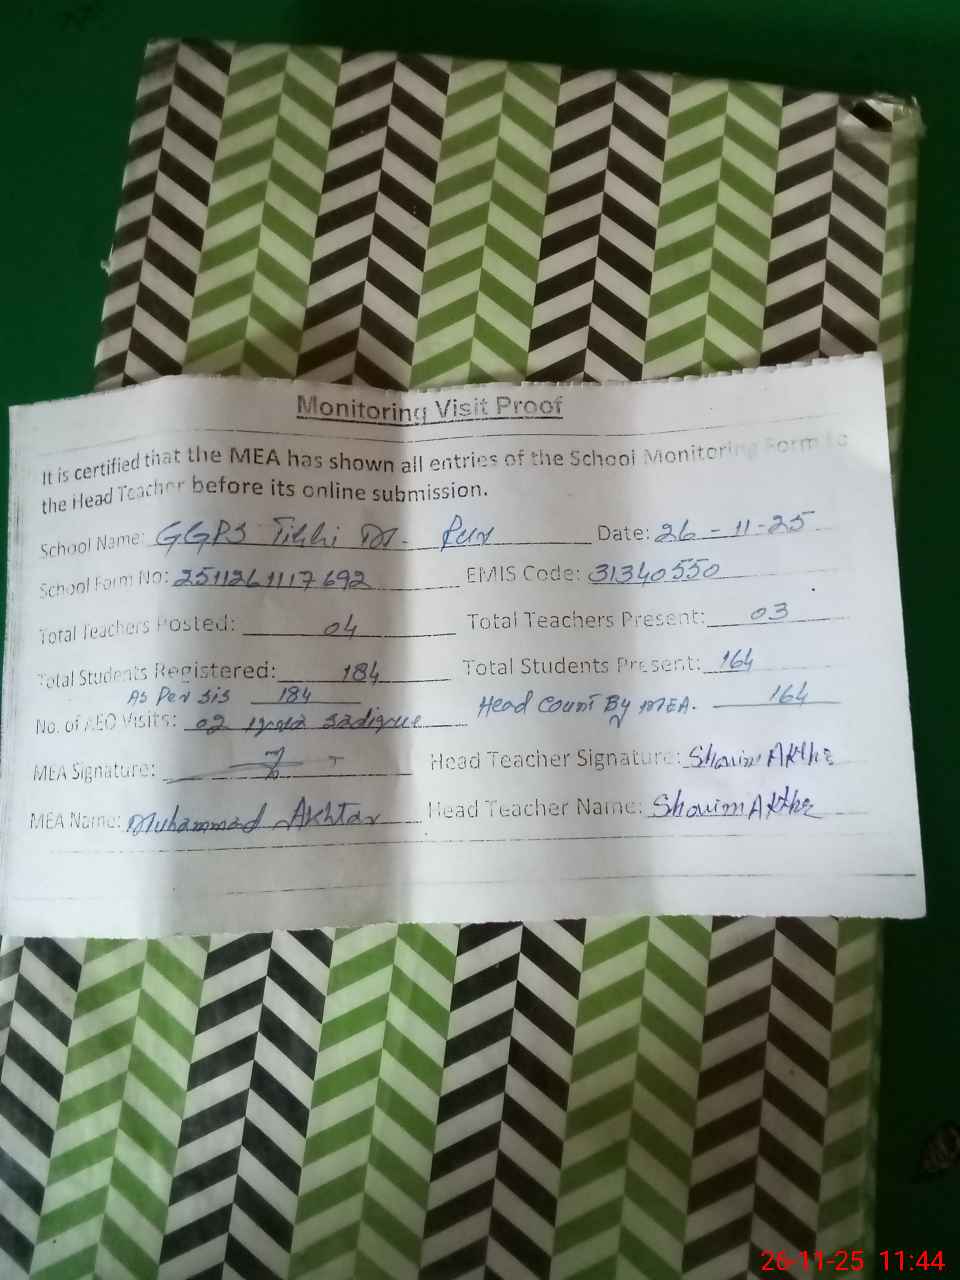 Monitoring Visit Proof
It is certified that the MEA has shown all entries of the School Monitoring Form to
the Head Teacher before its online submission.
School Name: GGPS Tibbi Date: 26-11-25
School Form No: 2511261117692 EMIS Code: 31340550
Total Teachers Posted: 04 Total Teachers Present: 03
Total Students Registered: 184 Total Students Present: 164
As Per SIS 184 Head Count By MEA. 164
No. of AEO Visits: 02
MEA Signature: Head Teacher Signature:
MEA Name: Muhammad Akhtar Head Teacher Name:
26-11-25 11:44